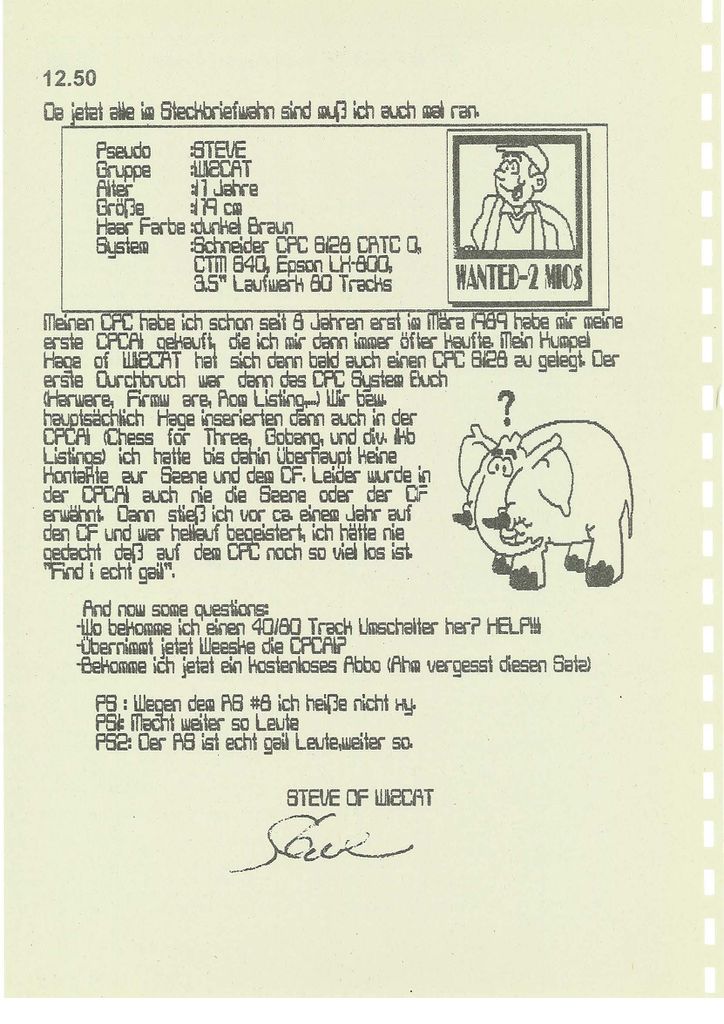 12.50
Da jetzt alle im Steckbriefwahn sind muß ich auch mal ran.
Pseudo :STEVE
Gruppe :WIZCAT
Alter :17 Jahre
Größe :179 cm
Haar Farbe :dunkel Braun
System :Schneider CPC 6128 CRTC 0,
CTM 640, Epson LX-800,
3.5" Laufwerk 80 Tracks
WANTED-2 MIO$
Meinen CPC habe ich schon seit 6 Jahren erst im März 1989 habe mir meine
erste CPCAI gekauft, die ich mir dann immer öfter kaufte. Mein Kumpel
Hage of WIZCAT hat sich dann bald auch einen CPC 6128 zu gelegt. Der
erste Durchbruch war dann das CPC System Buch
(Harware, Firmw are, Rom Listing,...) Wir bzw.
hauptsächlich Hage inserierten dann auch in der
CPCAI (Chess for Three, Gobang, und div. 1kb
Listings) ich hatte bis dahin überhaupt keine
Kontakte zur Szene und dem CF. Leider wurde in
der CPCAI auch nie die Szene oder der CF
erwähnt. Dann stieß ich vor ca. einem Jahr auf
den CF und war hellauf begeistert, ich hätte nie
gedacht daß auf dem CPC noch so viel los ist.
"Find i echt gail".
?
And now some questions:
-Wo bekomme ich einen 40/80 Track Umschalter her? HELP!!!
-Übernimmt jetzt Weeske die CPCAI?
-Bekomme ich jetzt ein kostenloses Abbo (Ähm vergesst diesen Satz)
PS : Wegen dem RS #8 ich heiße nicht xy.
PS1: Macht weiter so Leute
PS2: Der RS ist echt gail Leute,weiter so.
STEVE OF WIZCAT
Steve